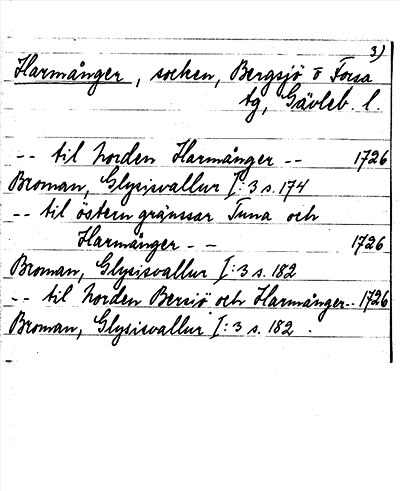 3)
Harmånger, socken, Bergsjö o Forsa
tg, Gävleb. l.
-- til norden Harmånger -- 1726
Broman, Glysisvallur I:3 s. 174
-- til östern gränssar Tuna och
Harmånger -- 1726
Broman, Glysisvallur I:3 s. 182
-- til norden Bersiö och Harmånger -- 1726
Broman, Glysisvallur I:3 s. 182.